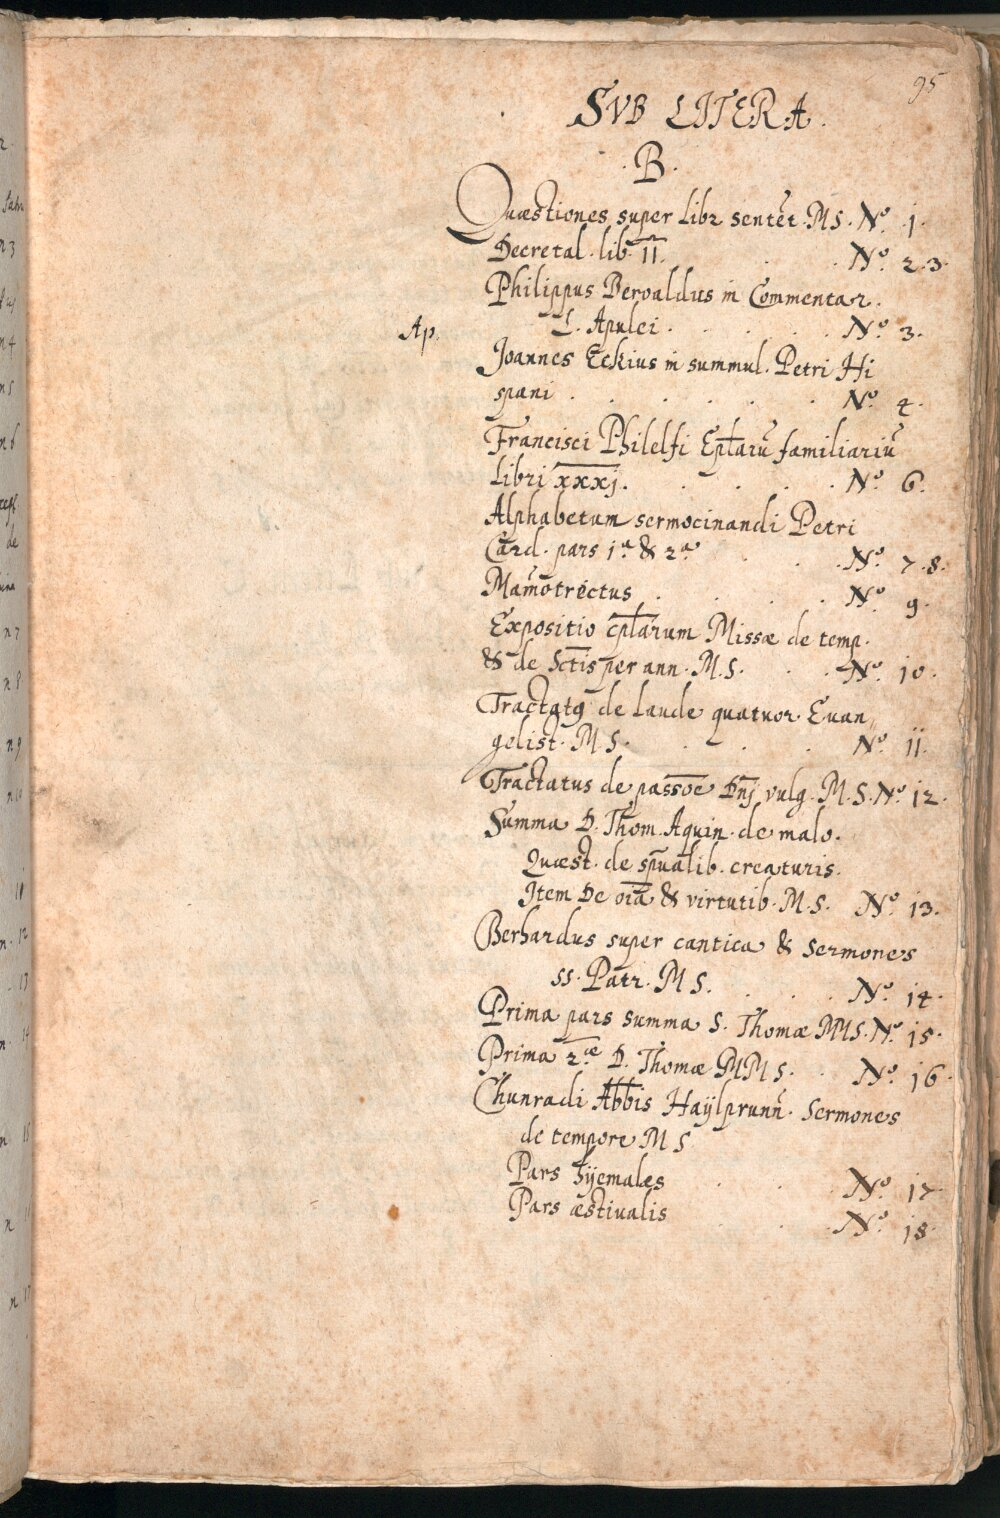 95
SVB LITERA.
.B.
Quæstiones super Libr sentēt. MS. Nº. 1.
Decretal. lib. II. . . Nº. 2.3.
Philippus Beroaldus in Commentar.
L. Apulei . . . . . Nº 3.
Ap.
Joannes Eckius in summul. Petri Hi
spani . . . . . . Nº. 4.
Francisci Philelfi Ep̄larū familiariū
Libri xxxj. . . . . Nº. 6.
Alphabetum sermocinandi Petri
Card. pars 1ª & 2ª . . . Nº. 7.8.
Mam̄otrectus . . . . Nº. 9.
Expositio ep̄larum Missæ de temp.
& de Sc̄tis per ann. M.S. . . Nº. 10.
Tractatꝰ de Laude quatuor Euan„
gelist. M S. . . . . Nº. 11.
Tractatus de passōe Dn̄j vulg. M.S. Nº. 12.
Summa D. Thom. Aquin. de malo.
Quæst. de sp̄ualib. creaturis.
Item De oīa & virtutib. M.S. Nº. 13.
Berhardus super cantica & Sermones
ss. Patr. M S. . . . Nº. 14.
Prima pars summa S. Thomæ MMS. Nº. 15.
Prima 2.æ D. Thomæ MMS. . Nº. 16.
Chunradi Abb̄is Haÿlprunn̄. Sermones
de tempore M S
Pars hÿemales . . . Nº. 17
Pars æstiualis . . . Nº. 18.